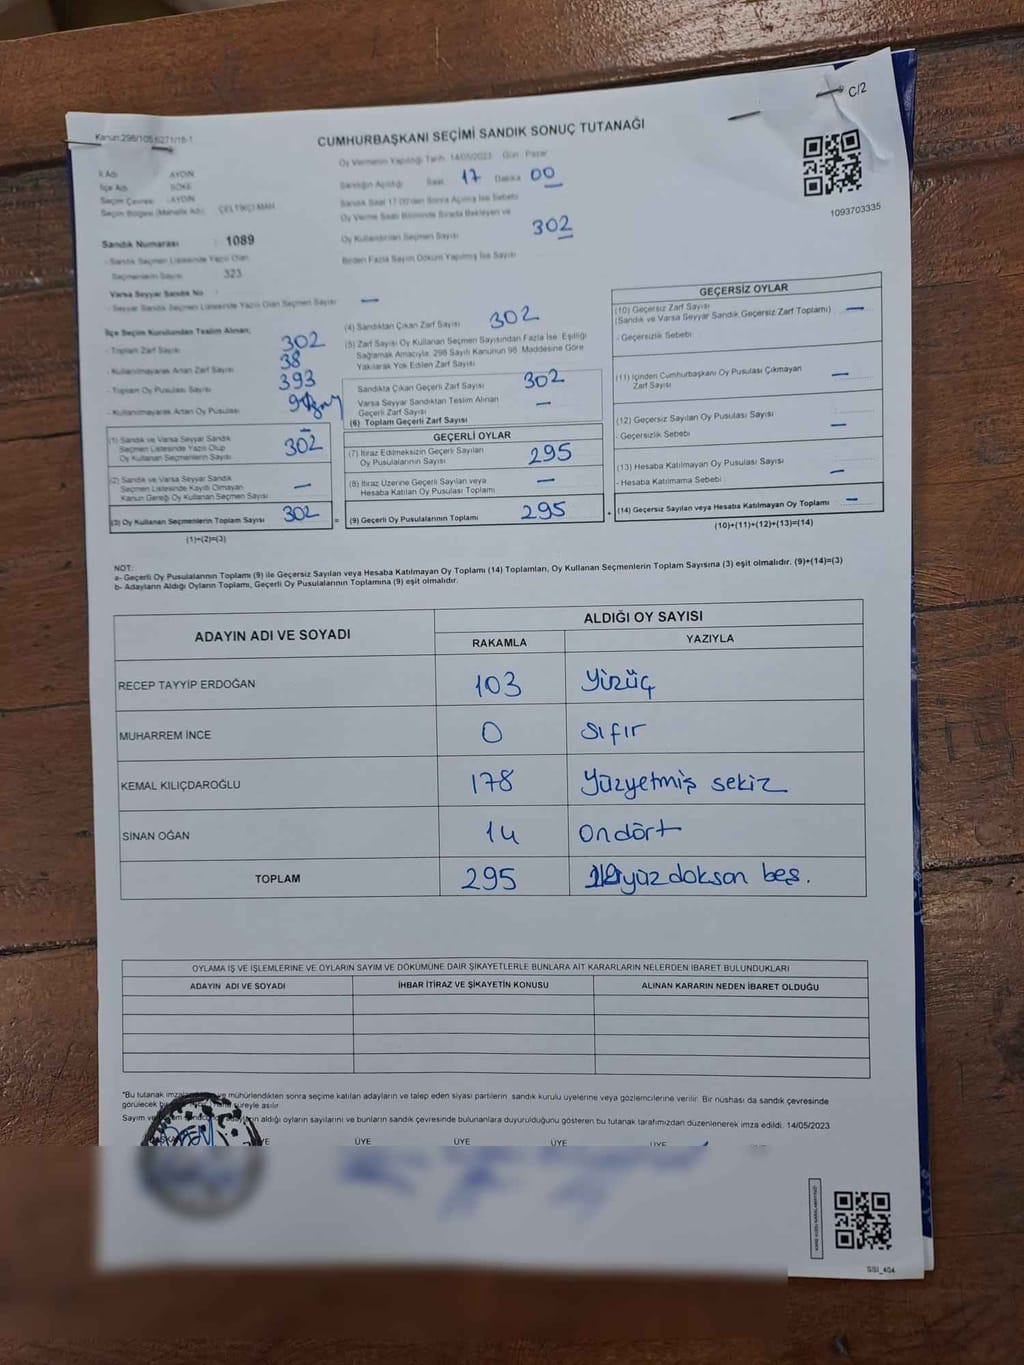 C/2
Kanun:298/105,6271/18-1
CUMHURBAŞKANI SEÇİMİ SANDIK SONUÇ TUTANAĞI
Oy Vermenin Yapıldığı Tarih 14/05/2023 Gün : Pazar
İl Adı AYDIN
İlçe Adı SÖKE
Seçim Çevresi :AYDIN
Seçim Bölgesi (Mahalle Adı) : ÇELTİKÇİ MAH.
Sandığın Açıldığı Saat 17 Dakika 00
Sandık Saat 17:00'den Sonra Açılmış İse Sebebi
Oy Verme Saati Bitiminde Sırada Bekleyen ve
Oy Kullandırılan Seçmen Sayısı 302
Birden Fazla Sayım Döküm Yapılmış İse Sayısı
1093703335
Sandık Numarası : 1089
- Sandık Seçmen Listesinde Yazılı Olan
Seçmenlerin Sayısı 323
Varsa Seyyar Sandık No
- Seyyar Sandık Seçmen Listesinde Yazılı Olan Seçmen Sayısı —
İlçe Seçim Kurulundan Teslim Alınan;
- Toplam Zarf Sayısı 302
- Kullanılmayarak Artan Zarf Sayısı 38
- Toplam Oy Pusulası Sayısı 393
- Kullanılmayarak Artan Oy Pusulası
(1) Sandık ve Varsa Seyyar Sandık
Seçmen Listesinde Yazılı Olup
Oy Kullanan Seçmenlerin Sayısı 302
(2) Sandık ve Varsa Seyyar Sandık
Seçmen Listesinde Kayıtlı Olmayan
Kanun Gereği Oy Kullanan Seçmen Sayısı —
(3) Oy Kullanan Seçmenlerin Toplam Sayısı 302
(1)+(2)=(3)
(4) Sandıktan Çıkan Zarf Sayısı 302
(5) Zarf Sayısı Oy Kullanan Seçmen Sayısından Fazla İse, Eşitliği
Sağlamak Amacıyla, 298 Sayılı Kanunun 98. Maddesine Göre
Yakılarak Yok Edilen Zarf Sayısı
Sandıkta Çıkan Geçerli Zarf Sayısı 302
Varsa Seyyar Sandıktan Teslim Alınan
Geçerli Zarf Sayısı —
(6) Toplam Geçerli Zarf Sayısı
GEÇERLİ OYLAR
(7) İtiraz Edilmeksizin Geçerli Sayılan
Oy Pusulalarının Sayısı 295
(8) İtiraz Üzerine Geçerli Sayılan veya
Hesaba Katılan Oy Pusulası Toplamı —
= (9) Geçerli Oy Pusulalarının Toplamı 295
GEÇERSİZ OYLAR
(10) Geçersiz Zarf Sayısı
(Sandık ve Varsa Seyyar Sandık Geçersiz Zarf Toplamı) —
- Geçersizlik Sebebi:
(11) İçinden Cumhurbaşkanı Oy Pusulası Çıkmayan
Zarf Sayısı —
(12) Geçersiz Sayılan Oy Pusulası Sayısı —
- Geçersizlik Sebebi
(13) Hesaba Katılmayan Oy Pusulası Sayısı —
- Hesaba Katılmama Sebebi
+ (14) Geçersiz Sayılan veya Hesaba Katılmayan Oy Toplamı —
(10)+(11)+(12)+(13)=(14)
NOT:
a- Geçerli Oy Pusulalarının Toplamı (9) ile Geçersiz Sayılan veya Hesaba Katılmayan Oy Toplamı (14) Toplamları, Oy Kullanan Seçmenlerin Toplam Sayısına (3) eşit olmalıdır. (9)+(14)=(3)
b- Adayların Aldığı Oyların Toplamı, Geçerli Oy Pusulalarının Toplamına (9) eşit olmalıdır.
ADAYIN ADI VE SOYADI ALDIĞI OY SAYISI
RAKAMLA YAZIYLA
RECEP TAYYİP ERDOĞAN 103 Yüzüç
MUHARREM İNCE 0 Sıfır
KEMAL KILIÇDAROĞLU 178 Yüzyetmiş sekiz
SİNAN OĞAN 14 Ondört
TOPLAM 295 yüz doksan beş.
OYLAMA İŞ VE İŞLEMLERİNE VE OYLARIN SAYIM VE DÖKÜMÜNE DAİR ŞİKAYETLERLE BUNLARA AİT KARARLARIN NELERDEN İBARET BULUNDUKLARI
ADAYIN ADI VE SOYADI İHBAR İTİRAZ VE ŞİKAYETİN KONUSU ALINAN KARARIN NEDEN İBARET OLDUĞU
"Bu tutanak mühürlendikten sonra seçime katılan adayların ve talep eden siyasi partilerin sandık kurulu üyelerine veya gözlemcilerine verilir. Bir nüshası da sandık çevresinde
görülecek süreyle asılır
Sayım ve aldığı oyların sayılarını ve bunların sandık çevresinde bulunanlara duyurulduğunu gösteren bu tutanak tarafımızdan düzenlenerek imza edildi. 14/05/2023
ÜYE ÜYE ÜYE ÜYE
SSI_404